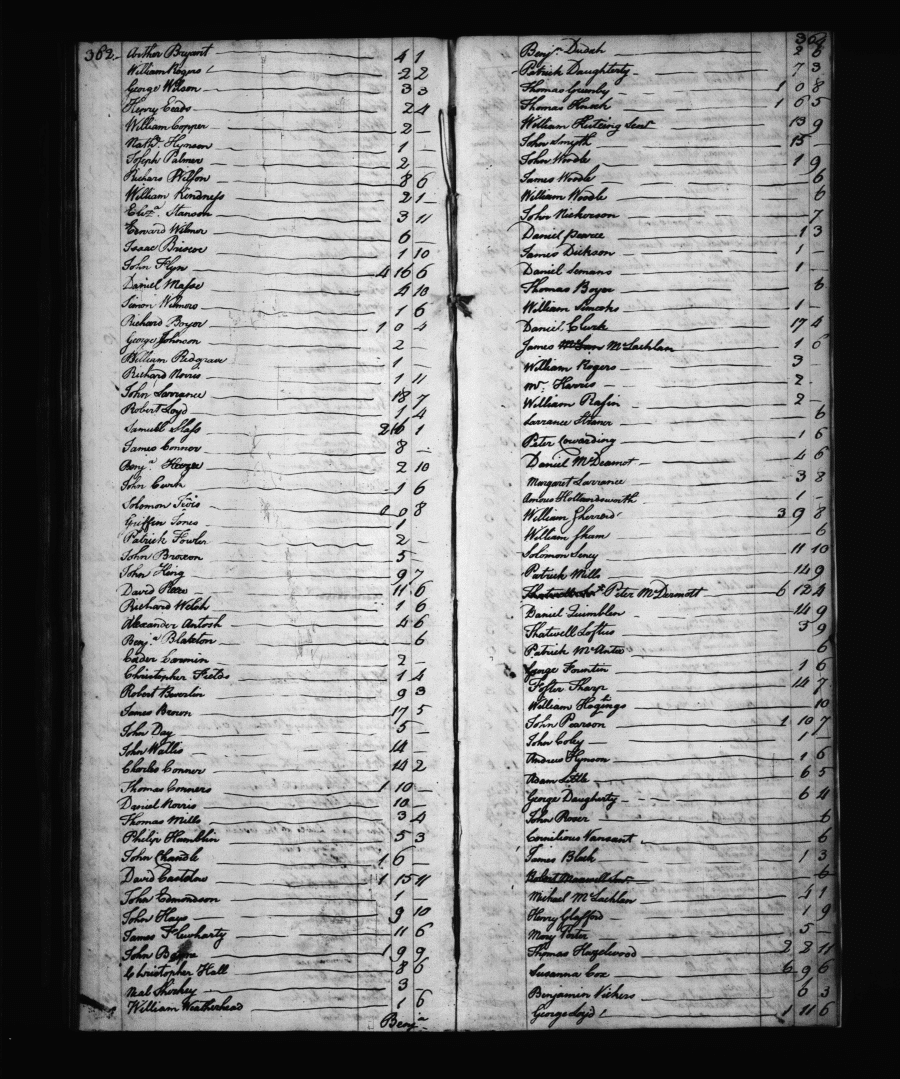 362
Arthur Bryant 4 1
William Rogers 2 2
George Wilson 3 3
Henry Eads 2 4
William Copper 2 —
Nath.l Hynson 1 —
Joseph Palmer 2 —
Richard Wilson 8 6
William Kindness 2 1
Eliz.a Stanson 3 11
Edward Wilmer 6
Isaac Briscoe 1 10
John Flyn 4 16 6
Daniel Masse 4 10
Simon Wilmore 1 6
Richard Boyer 1 0 4
George Johnson 2 —
William Redgrave 1
Richard Norris 1 11
John Larrance 18 7
Robert Loyd 1 4
Samuel 2 16 1
James Connor 8 —
Benj.n 2 10
John 1 6
Solomon 0 8
Griffin Jones 1
Patrick Fowler 2 —
John Broxon 5
John King 9 7
David 11 6
Richard Welch 1 6
Alexander Antosh 4 6
Benj.n Blakston 6
2 —
Christopher Fields 1 4
Robert 9 3
James Brown 17 5
John Day 5 —
John Wallis 14 —
Charles Conner 14 2
Thomas Conners 1 10 —
Daniel Norris 10 —
Thomas Mills 3 4
Philip Hamblin 5 3
John Chandle 1 6 —
David Castolow 1 15 4
John Edmondson 1 —
John Hays 9 10
James Flewharty 11 6
John 1 9 9
Christopher Hall 8 6
Neal 3
William Weatherhead 1 6
Benj.n
Benj.n 2 6
Patrick Daugherty 7 3
Thomas 1 0 8
Thomas 1 6 5
William Senr 13 9
John Smyth 15 —
John Woodle 1 9
James Woodle 6
William Woodle 6
John Nickerson 7
Daniel Pearce 1 3
James Dickson 1 —
Daniel Lemans 1 —
Thomas Boyer 6
William 1 —
Daniel Clark 17 4
James McLachlan 1 6
William Rogers 3
Mr. Harris 2
William Rasin 2 —
Larrance 6
Peter Cowarding 1 6
Daniel McDearmot 4 6
Margaret Larrance 3 8
Hollandsworth 1 —
William 3 9 8
William 6
Solomon Seney 11 10
Patrick Mills 14 9
Peter McDermott 6 12 4
Daniel 14 9
Shatwell Loftus 5 9
Patrick 6
George Fountin 1 6
Foster Tharp 14 7
William 10
John Pearson 1 10 7
John Coley 1 —
Andrew Hynson 1 6
Adam Little 6 5
George Daugherty 6 4
John 6
Cornilious Vansant 6
James Black 1 3
Robert Maxwell 6
Michael McLachlan 4 1
Henry Glafford 1 9
Mary 5 —
Thomas Hazelwood 2 2 11
Susanna Cox 6 9 6
Benjamin Vickers 6 3
George Loyd 1 11 6